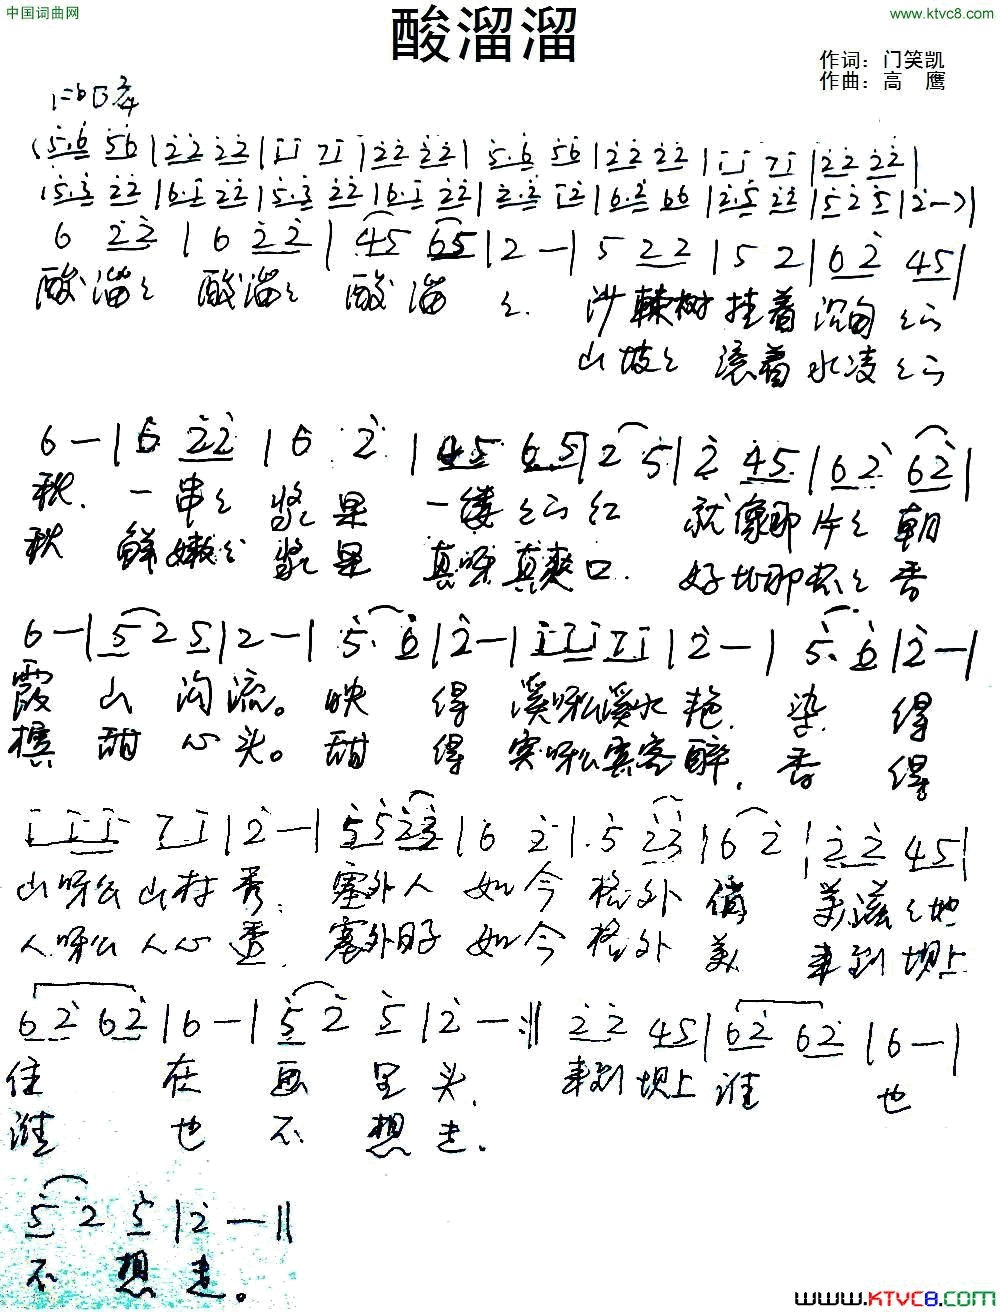 中国词曲网
www.ktvc8.com
酸溜溜
作词：门笑凯
作曲：高 鹰
1=♭B 2/4
(5.6 56 | 22 22 | 11 71 | 22 22 | 5.6 56 | 22 22 | 11 71 | 22 22 |
5.3 22 | 6.1 22 | 5.3 22 | 6.1 22 | 2.2 12 | 6.2 66 | 2.5 22 | 5 2 5 | 2 — ) |
6 22 | 6 22 | 45 65 | 2 — | 5 22 | 5 2 | 62 45 |
酸溜々 酸溜々 酸溜 々. 沙棘树 挂着
山坡々 滚着 水凌々
6 — | 6 22 | 6 2 | 45 65 | 2 5 | 2 45 | 62 62 |
秋. 一串々 浆果 一缕 红 就像那 片々 朝
秋 鲜嫩々 浆果 真呀真爽口. 好比那 杯々 香
6 — | 5 2 5 | 2 — | 5. 6 | 2 — | 111 71 | 2 — | 5. 6 | 2 — |
霞 山 沟流。映 得 溪呀么溪水 艳. 染 得
槟 甜 心头。甜 得 宾呀么宾客 醉, 香 得
111 71 | 2 — | 5523 | 6 2 | 5 23 | 6 2 | 22 45 |
山呀么山村 秀, 塞外人 如今 格外 俏 美滋々地
人呀么人心 透, 塞外日子 如今 格外 美 来到坝上
62 62 | 6 — | 5 2 5 | 2 — :‖ 22 45 | 62 62 | 6 — |
住 在 画 里 头, 来到坝上 谁 也
谁 也 不 想 走.
5 2 5 | 2 — ‖
不 想 走。
www.KTVC8.com